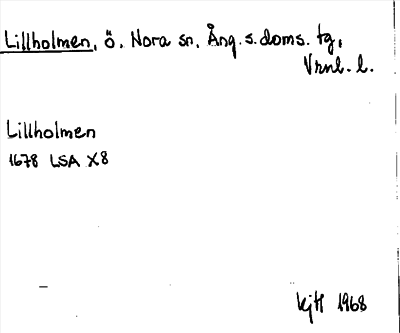 Lillholmen, ö, Nora sn, Ång. s. doms. tg,
Vrnl. l.
Lillholmen
1678 LSA X8
KjH 1968